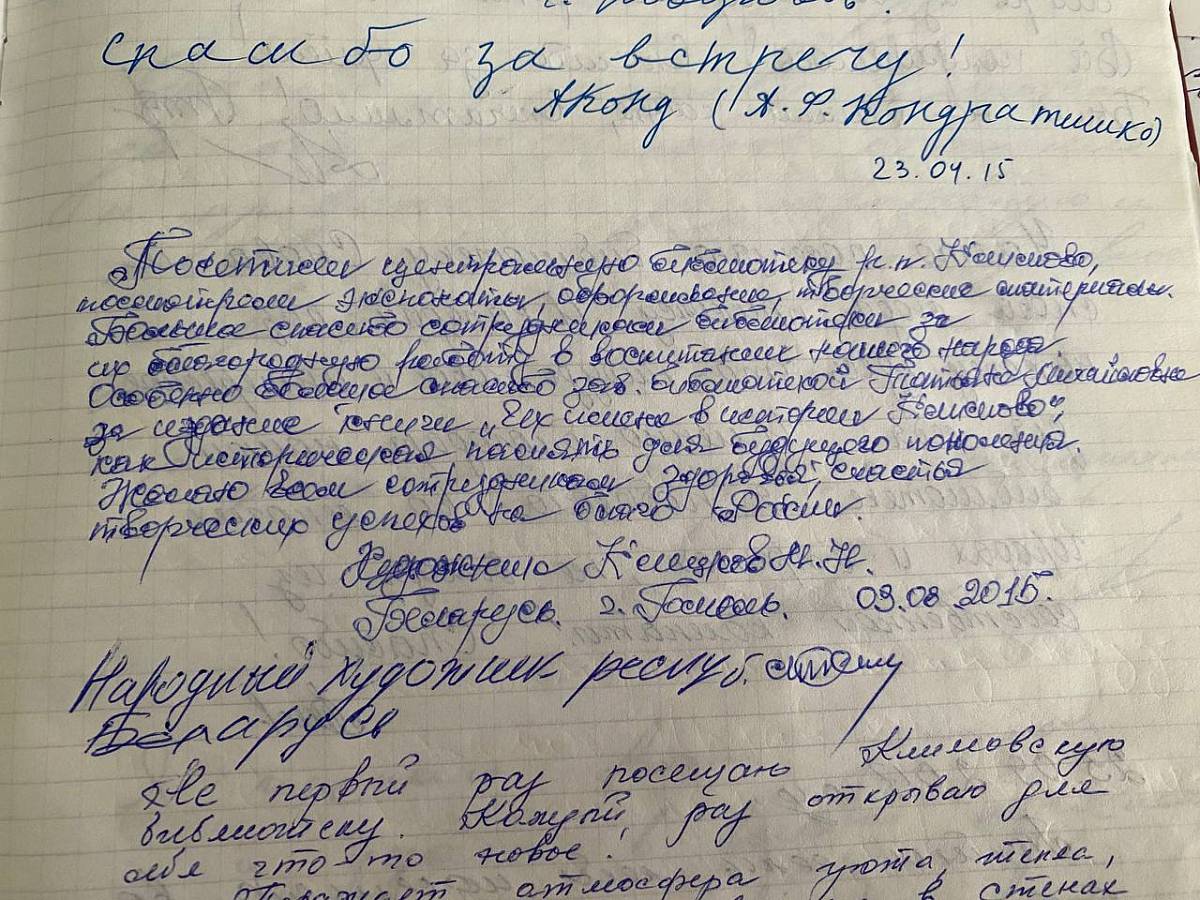 Спасибо за встречу!
АКонд (А.Ф. Кондратишко)
23.04.15
Посетили центральную библиотеку р.п. Климово,
посмотрели экспонаты, оформление, творческие материалы.
Большое спасибо сотрудникам библиотеки за
их благородную работу в воспитании нашего народа
Особенно большое спасибо зав. библиотекой Татьяне Михайловне
за издание книги „Их имена в истории Климово",
как историческая память для будущего поколения.
Желаю Вам сотрудникам здоровья, счастья
творческих успехов на благо России.
Художник Н.Н.
Беларусь. г. Гомель. 03.08.2015.
Народный художник респуб.
Беларусь
Не первый раз посещаю Климовскую
библиотеку. Каждый раз открываю для
себя что то новое!
Поражает атмосфера уюта, тепла,
в стенах